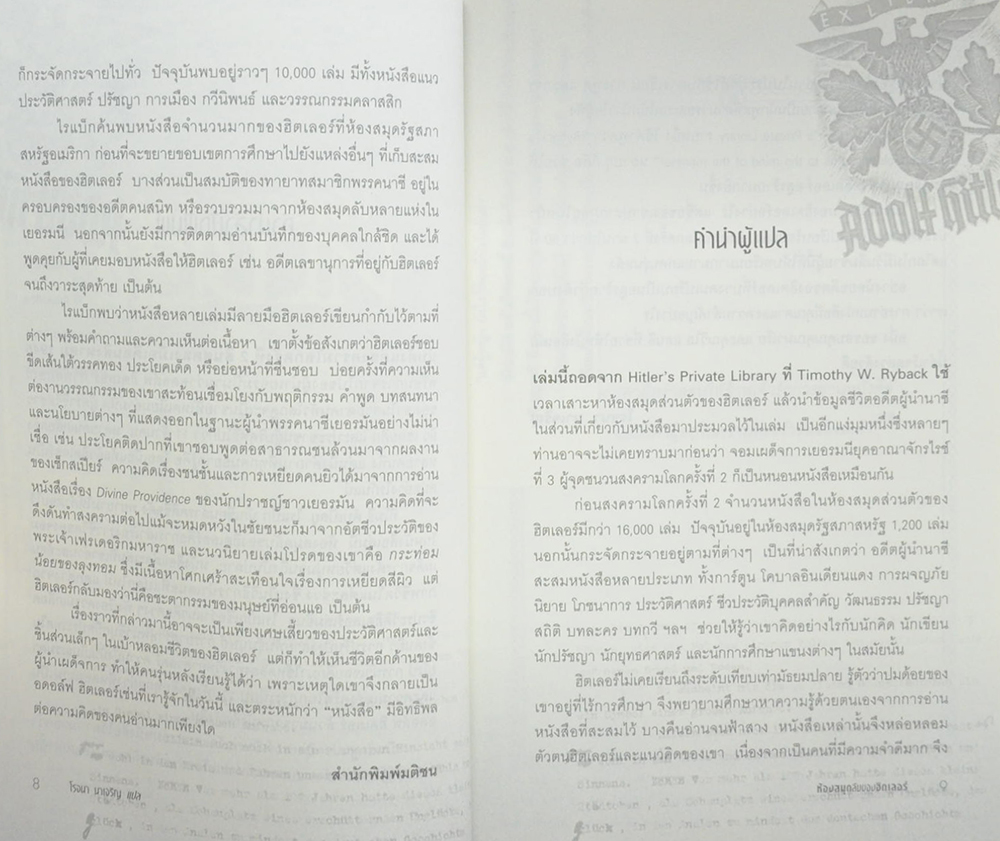 ก็กระจัดกระจายไปทั่ว ปัจจุบันพบอยู่ราวๆ 10,000 เล่ม มีทั้งหนังสือแนว
ประวัติศาสตร์ ปรัชญา การเมือง กวีนิพนธ์ และวรรณกรรมคลาสสิก
ไรแบ็กค้นพบหนังสือจำนวนมากของฮิตเลอร์ที่ห้องสมุดรัฐสภา
สหรัฐอเมริกา ก่อนที่จะขยายขอบเขตการศึกษาไปยังแหล่งอื่นๆ ที่เก็บสะสม
หนังสือของฮิตเลอร์ บางส่วนเป็นสมบัติของทายาทสมาชิกพรรคนาซี อยู่ใน
ครอบครองของอดีตคนสนิท หรือรวบรวมมาจากห้องสมุดลับหลายแห่งใน
เยอรมนี นอกจากนั้นยังมีการติดตามอ่านบันทึกของบุคคลใกล้ชิด และได้
พูดคุยกับผู้ที่เคยมอบหนังสือให้ฮิตเลอร์ เช่น อดีตเลขานุการที่อยู่กับฮิตเลอร์
จนถึงวาระสุดท้าย เป็นต้น
ไรแบ็กพบว่าหนังสือหลายเล่มมีลายมือฮิตเลอร์เขียนกำกับไว้ตามที่
ต่างๆ พร้อมคำถามและความเห็นต่อเนื้อหา เขาตั้งข้อสังเกตว่าฮิตเลอร์ชอบ
ขีดเส้นใต้วรรคทอง ประโยคเด็ด หรือย่อหน้าที่ชื่นชอบ บ่อยครั้งที่ความเห็น
ต่องานวรรณกรรมของเขาสะท้อนเชื่อมโยงกับพฤติกรรม คำพูด บทสนทนา
และนโยบายต่างๆ ที่แสดงออกในฐานะผู้นำพรรคนาซีเยอรมันอย่างไม่น่า
เชื่อ เช่น ประโยคติดปากที่เขาชอบพูดต่อสาธารณชนล้วนมาจากผลงาน
ของเช็กสเปียร์ ความคิดเรื่องชนชั้นและการเหยียดคนยิวได้มาจากการอ่าน
หนังสือเรื่อง Divine Providence ของนักปราชญ์ชาวเยอรมัน ความคิดที่จะ
ดึงดันทำสงครามต่อไปแม้จะหมดหวังในชัยชนะก็มาจากอัตชีวประวัติของ
พระเจ้าเฟรเดอริกมหาราช และนวนิยายเล่มโปรดของเขาคือ กระท่อม
น้อยของลุงทอม ซึ่งมีเนื้อหาโศกเศร้าสะเทือนใจเรื่องการเหยียดสีผิว แต่
ฮิตเลอร์กลับมองว่านี่คือชะตากรรมของมนุษย์ที่อ่อนแอ เป็นต้น
เรื่องราวที่กล่าวมานี้อาจจะเป็นเพียงเศษเสี้ยวของประวัติศาสตร์และ
ชิ้นส่วนเล็กๆ ในเบ้าหลอมชีวิตของฮิตเลอร์ แต่ก็ทำให้เห็นชีวิตอีกด้านของ
ผู้นำเผด็จการ ทำให้คนรุ่นหลังเรียนรู้ได้ว่า เพราะเหตุใดเขาจึงกลายเป็น
อดอล์ฟ ฮิตเลอร์เช่นที่เรารู้จักในวันนี้ และตระหนักว่า "หนังสือ" มีอิทธิพล
ต่อความคิดของคนอ่านมากเพียงใด
สำนักพิมพ์มติชน
8 โรจนา นาเจริญ แปล
EX LIBRIS
Adolf Hitl
คำนำผู้แปล
เล่มนี้ถอดจาก Hitler's Private Library ที่ Timothy W. Ryback ใช้
เวลาเสาะหาห้องสมุดส่วนตัวของฮิตเลอร์ แล้วนำข้อมูลชีวิตอดีตผู้นำนาซี
ในส่วนที่เกี่ยวกับหนังสือมาประมวลไว้ในเล่ม เป็นอีกแง่มุมหนึ่งซึ่งหลายๆ
ท่านอาจจะไม่เคยทราบมาก่อนว่า จอมเผด็จการเยอรมนียุคอาณาจักรไรช์
ที่ 3 ผู้จุดชนวนสงครามโลกครั้งที่ 2 ก็เป็นหนอนหนังสือเหมือนกัน
ก่อนสงครามโลกครั้งที่ 2 จำนวนหนังสือในห้องสมุดส่วนตัวของ
ฮิตเลอร์มีกว่า 16,000 เล่ม ปัจจุบันอยู่ในห้องสมุดรัฐสภาสหรัฐ 1,200 เล่ม
นอกนั้นกระจัดกระจายอยู่ตามที่ต่างๆ เป็นที่น่าสังเกตว่า อดีตผู้นำนาซี
สะสมหนังสือหลายประเภท ทั้งการ์ตูน โคบาลอินเดียนแดง การผจญภัย
นิยาย โภชนาการ ประวัติศาสตร์ ชีวประวัติบุคคลสำคัญ วัฒนธรรม ปรัชญา
สถิติ บทละคร บทกวี ฯลฯ ช่วยให้รู้ว่าเขาคิดอย่างไรกับนักคิด นักเขียน
นักปรัชญา นักยุทธศาสตร์ และนักการศึกษาแขนงต่างๆ ในสมัยนั้น
ฮิตเลอร์ไม่เคยเรียนถึงระดับเทียบเท่ามัธยมปลาย รู้ตัวว่าปมด้อยของ
เขาอยู่ที่ไร้การศึกษา จึงพยายามศึกษาหาความรู้ด้วยตนเองจากการอ่าน
หนังสือที่สะสมไว้ บางคืนอ่านจนฟ้าสาง หนังสือเหล่านั้นจึงหล่อหลอม
ตัวตนฮิตเลอร์และแนวคิดของเขา เนื่องจากเป็นคนที่มีความจำดีมาก จึง
ห้องสมุดลับของฮิตเลอร์ 9